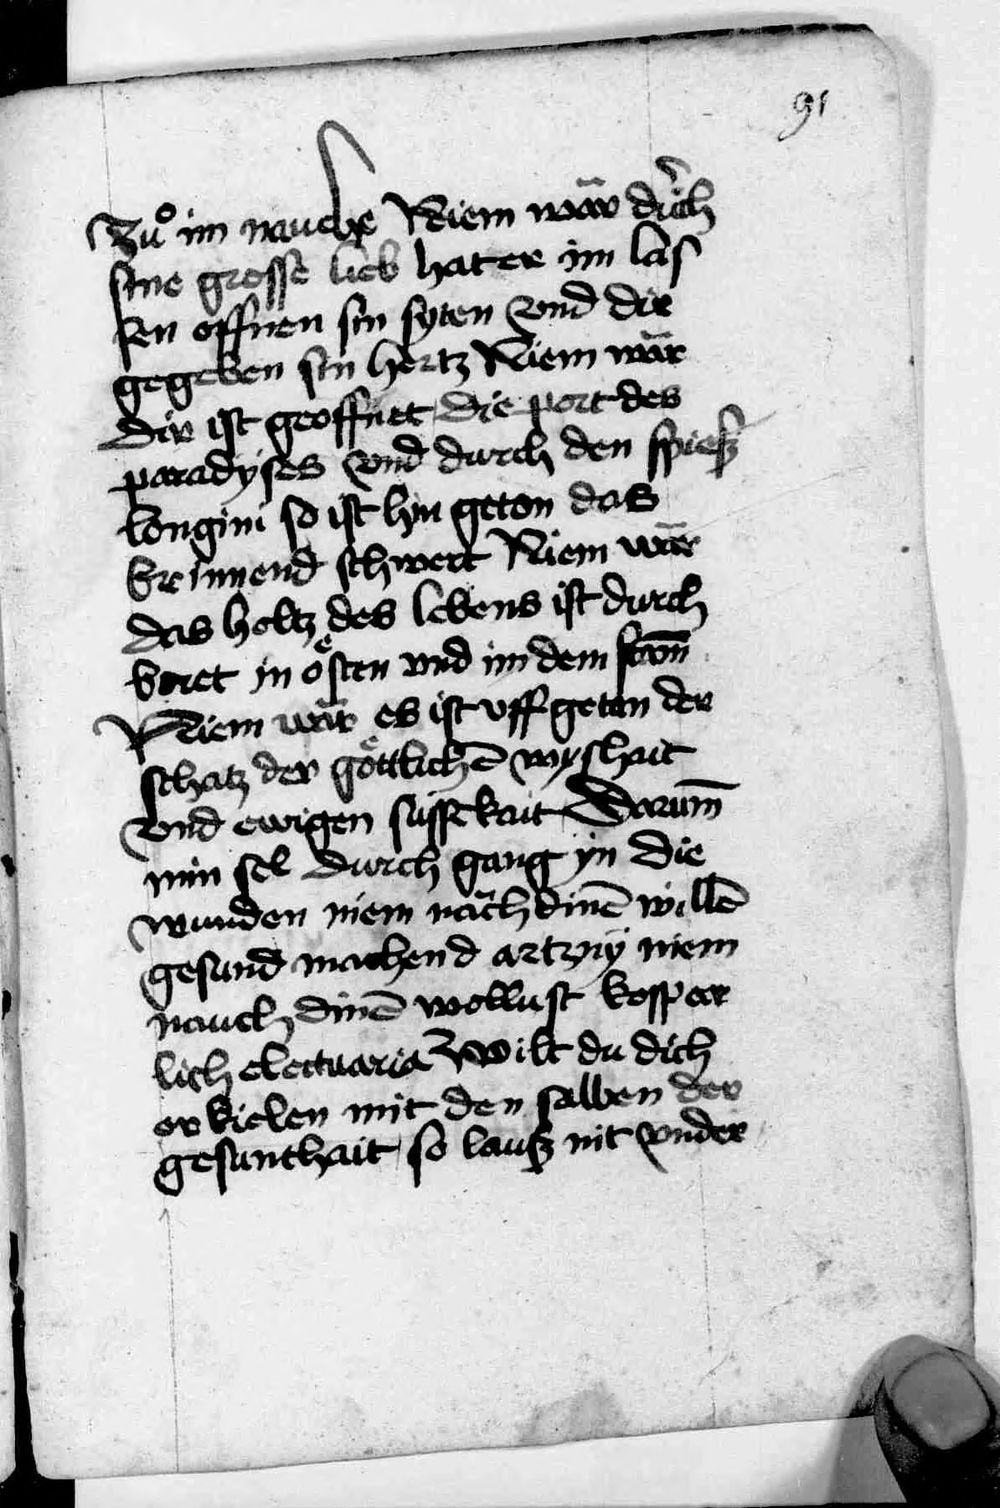 91
Zuͦ im nauche Niem war durch
sine grosse lieb hat er im las
sen offnen sin syten vnd dir
gegeben sin hertz Niem wär
dir ist geoffnet die port des
paradyses vnd durch den spiesz
longini so ist hin geton das
brinnend schwert Niem wär
das holtz des lebens ist durch
boret in oͤsten vnd im dem stam̄
Niem wär es ist vff getan der
schatz der goͤttlichē wyshait
vnd ewigen süssekait Darum̄
min sel durch gang yn die
wunden niem nach dinē willē
gesund machend artzny niem
nauch dinē wollust kosper
lich electuaria Wilt du dich
er kielen mit den salben der
gesunthait so lausz nit vnder